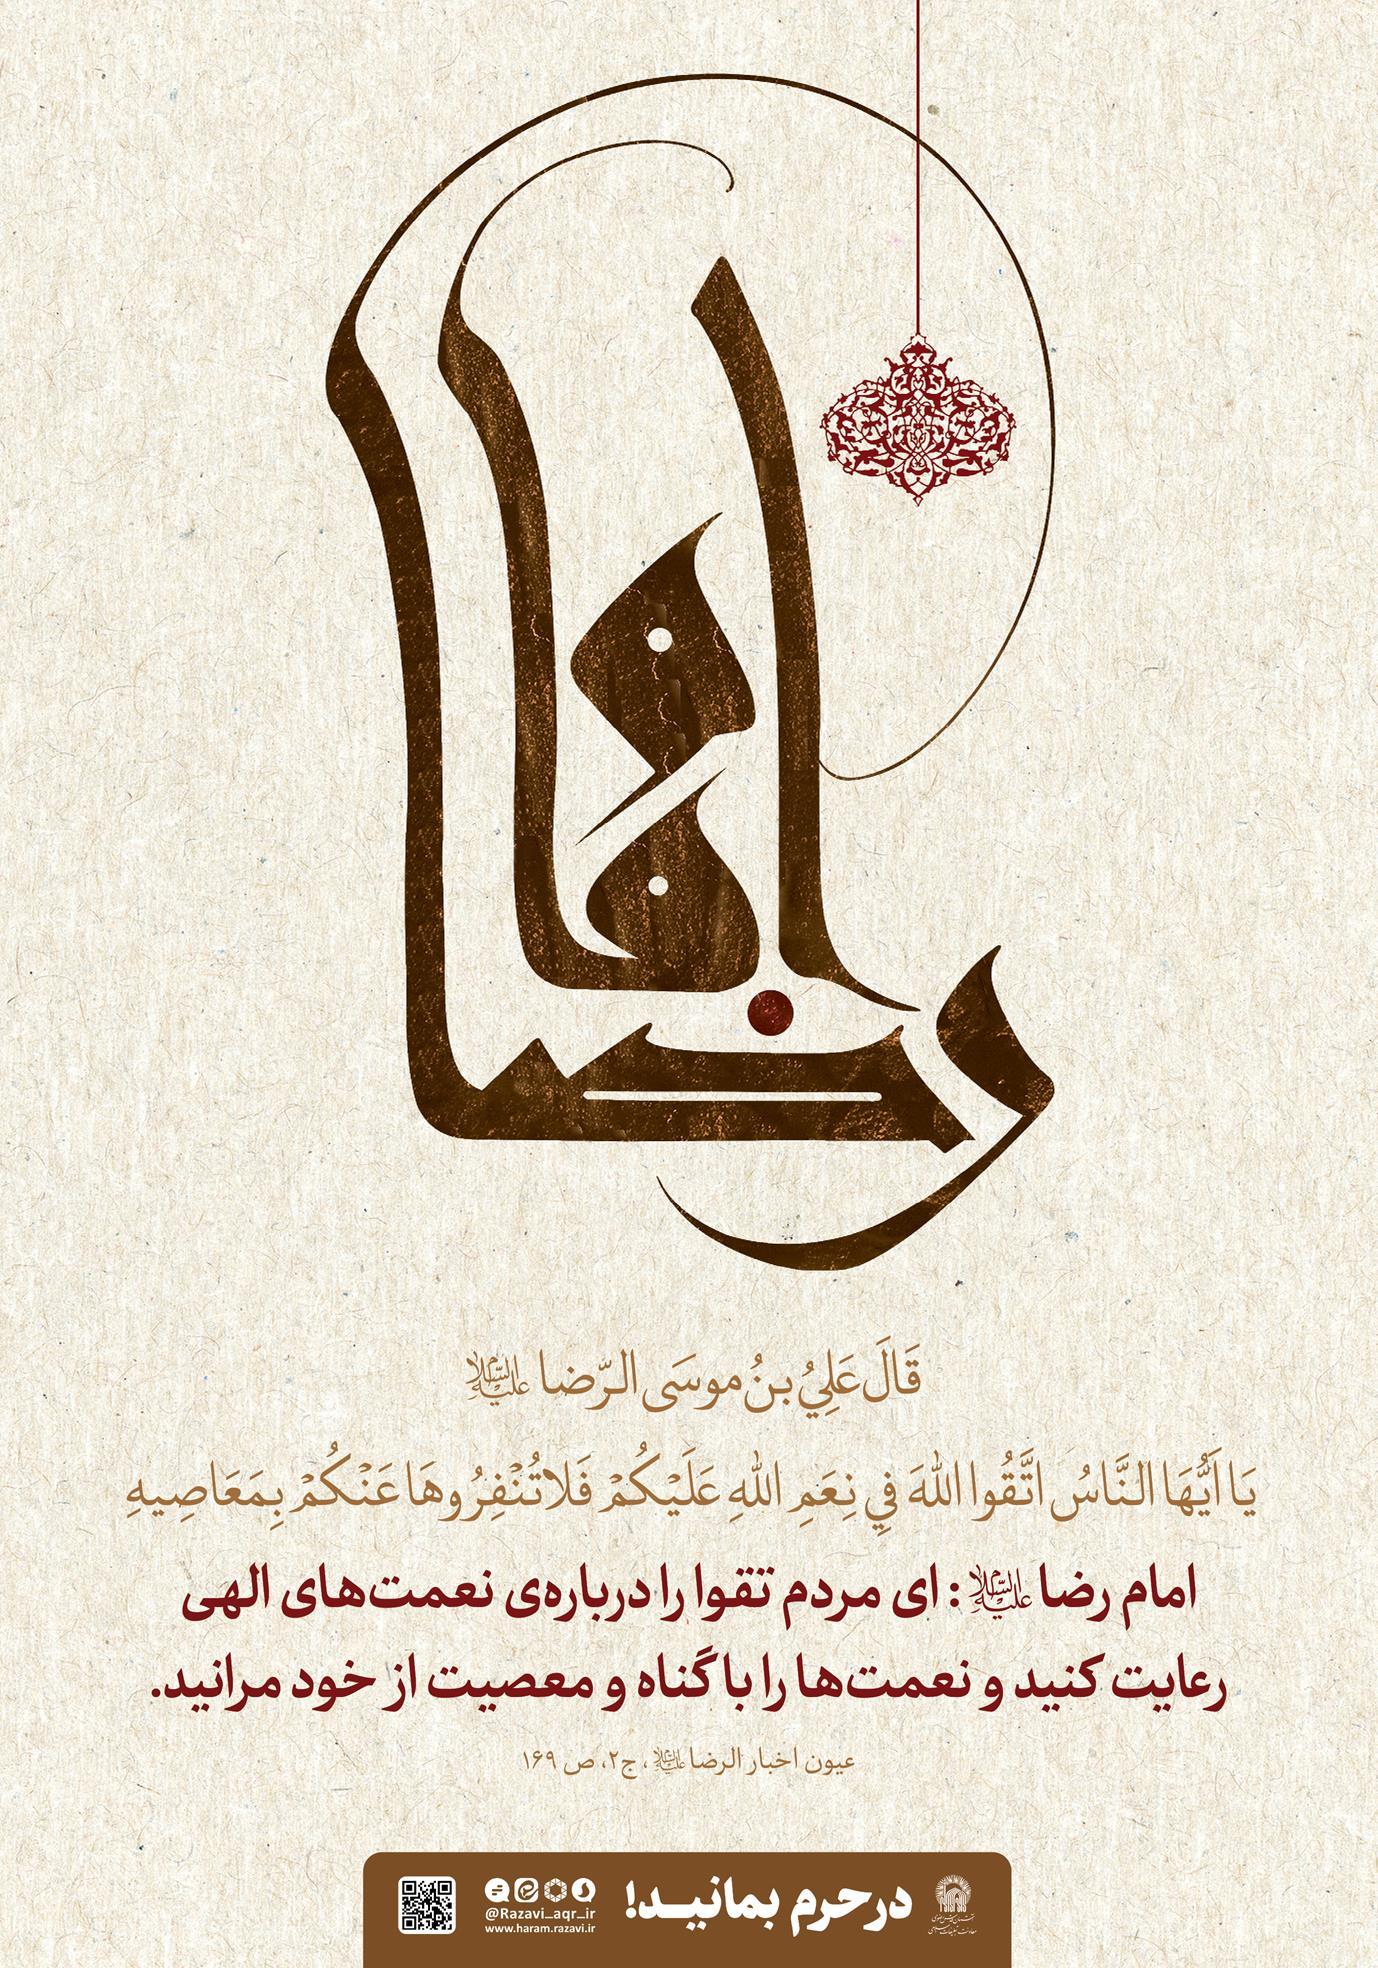 امام رضا
قَالَ عَلِيُ بنُ موسَی الرّضا علیه‌السلام
يَا اَيُّهَا النَّاسُ اتَّقُوا اللهَ فِي نِعَمِ اللهِ عَلَيْكُمْ فَلاتُنْفِرُوهَا عَنْكُمْ بِمَعَاصِيهِ
امام رضا علیه‌السلام: ای مردم تقوا را درباره‌ی نعمت‌های الهی
رعایت کنید و نعمت‌ها را با گناه و معصیت از خود مرانید.
عیون اخبار الرضا علیه‌السلام، ج۲، ص ۱۶۹
در حرم بمانید!
@Razavi_aqr_ir
www.haram.razavi.ir